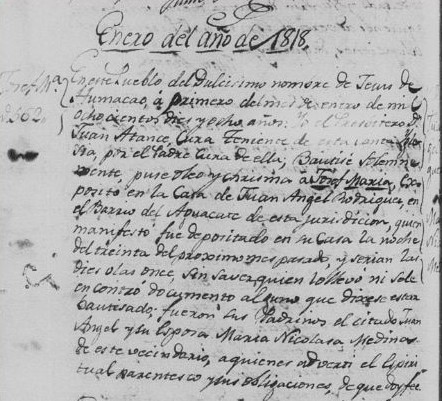 Enero del año de 1818.
Josef Ma.
En este Pueblo del Dulcisimo nombre de Jesus de
Humacao, á primero del mes de enero de mil
ocho cientos dies y ocho años: Yo el Presvitero Dn
Juan Atance, Cura Teniente de esta santa Igle
sia, por el Padre Cura de ella, Bautisé Solemne
mente, puse óleo y chrisma á Josef Maria, Ex-
posito en la Casa de Juan Angel Rodriguez, en
el Barrio del Aguacate de esta jurisdicion, quien
manifestó fue depositado en su Casa la noche
del treinta del proximo mes pasado, y serian las
dies o las once, sin saver quien lo llevo ni se le
encontró documento alguno que dixese estar
bautisado; fueron sus Padrinos el citado Juan
Angel y su Esposa Maria Nicolasa Medinas
de este vecindario, a quienes adverti el Espiri
tual parentesco y sus obligaciones, de que doy fee